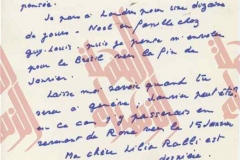 pensée.
Je pars à Londres pour une dizaine
de jours - Noël en famille chez
guy-Louis puis je pense m'envoler
pour le Brésil vers la fin de
Janvier.
Laisse moi savoir quand tu
seras à genève; Janvier peut être?
en ce cas j'y passerais en
revenant de Rome vers le 15 Janvier
Ma chère Lilia Ralli est